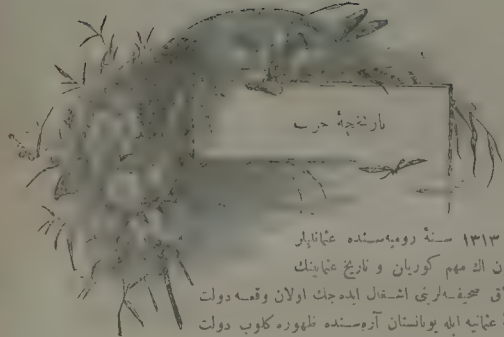 تاریخچهٔ حرب
۱۳۱۳ سنهٔ رومیه‌سنده عثمانلیلر
ن اك مهم كوریان و تاریخ عثمانینك
اق صحیفه‌لرینی اشغال ایده‌جك اولان وقعه دولت
عثمانیه ایله یونانستان آره‌سنده ظهوره كلوب دولت